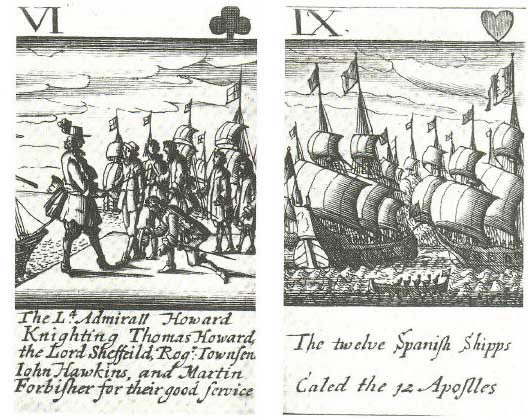 VI
The Ld. Admirall Howard
Knighting Thomas Howard,
the Lord Sheffeild, Rogr. Townsen
Iohn Hawkins, and Martin
Forbisher for their good service
IX
The twelve Spanish Shipps
Caled the 12 Apostles